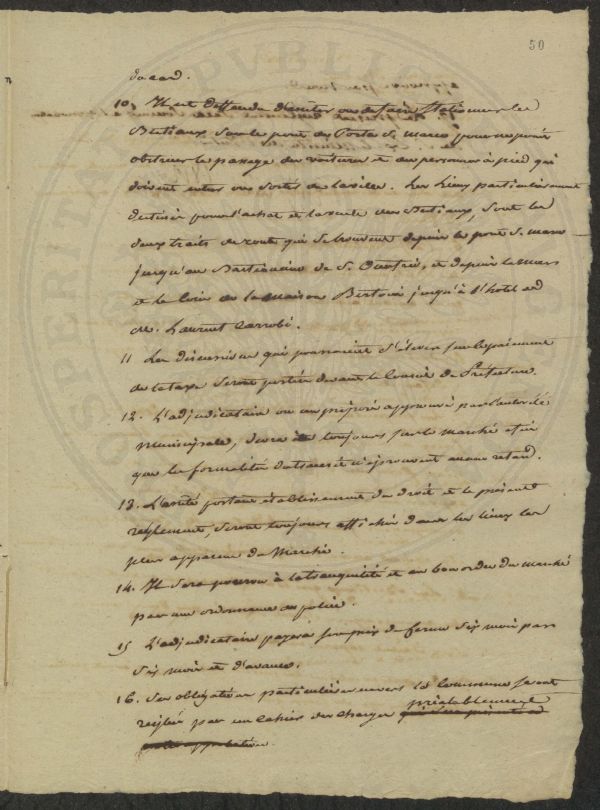 50
10. Il est deffendu d'arreter ou de faire stationner les
Bestiaux sur le pont de Porta S. Marco pour ne point
obstruer le passage des voitures et des personnes à pied qui
doivent entrer ou sortir de la ville. Les lieux particulièrement
destinés pour l'achat et la vente des Bestiaux, sont les
deux traits de route qui se trouvent depuis le pont S. Marco
jusqu'au de S. et depuis le Murs
et le Coin de la Maison jusqu'à l'hotel
de Laurent
11 Les discussions qui pourraient s'élever sur le paiement
de la taxe seront portées devant le Conseil de Préfecture.
12. L'adjudicataire ou un préposé approuvé par l'autorité
municipale, devra être toujours sur le marché afin
que les formalités n'éprouvent aucun retard.
13. L'arrêté portant établissement du droit et le présent
reglement, seront toujours affichés dans les lieux les
plus apparens du Marché.
14. Il sera pourvu à la tranquilité et au bon ordre du marché
par une ordonnance de police.
15 L'adjudicataire payera son prix de ferme six mois par
six mois et d'avance.
16. Ses obligations particulières envers la Commune seront
préalablement
reglées par un Cahier des charges